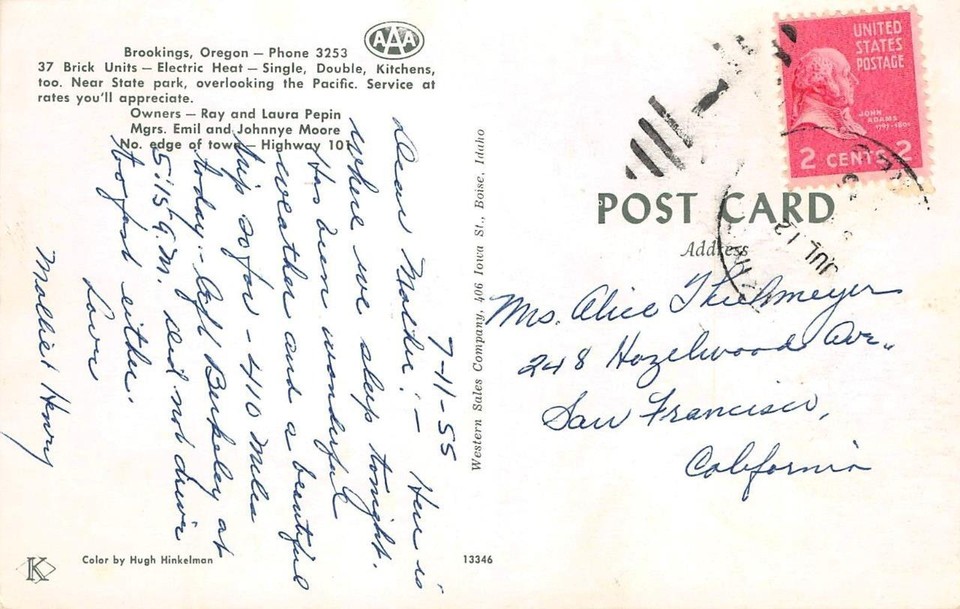 Brookings, Oregon — Phone 3253
AAA
37 Brick Units — Electric Heat — Single, Double, Kitchens,
too. Near State park, overlooking the Pacific. Service at
rates you'll appreciate.
Owners — Ray and Laura Pepin
Mgrs. Emil and Johnnye Moore
No. edge of town — Highway 101
7-11-55
Dear Mother: — Here is
where we sleep tonight.
Has been wonderful
weather and a beautiful
trip so far — 410 miles
today. — Left Berkeley at
5:15 a.m. and not driven
too fast either.
Love
Mollie & Henry
Color by Hugh Hinkelman
K
13346
Western Sales Company, 406 Iowa St., Boise, Idaho
UNITED
STATES
POSTAGE
JOHN
ADAMS
2 CENTS 2
JUL 12
POST CARD
Address
Ms. Alice
248 Hazelwood Ave.,
San Francisco,
California